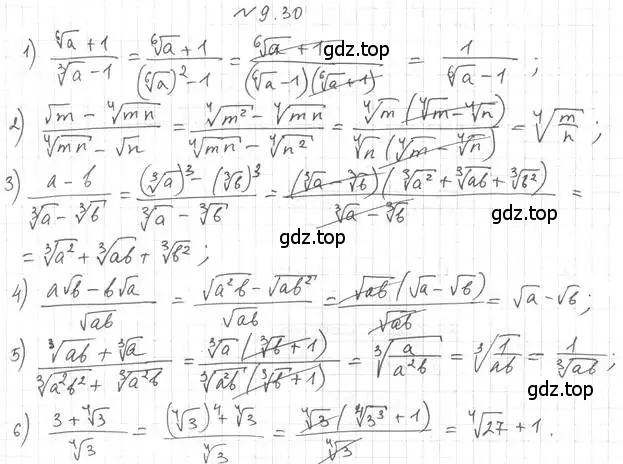 № 9.30
1) (⁶√a + 1)/(³√a − 1) = (⁶√a + 1)/((⁶√a)² − 1) = (⁶√a + 1)/((⁶√a − 1)(⁶√a + 1)) = 1/(⁶√a − 1) ;
gdz.top
2) (√m − ⁴√mn)/(⁴√mn − √n) = (⁴√m² − ⁴√mn)/(⁴√mn − ⁴√n²) = (⁴√m (⁴√m − ⁴√n))/(⁴√n (⁴√m − ⁴√n)) = ⁴√(m/n) ;
3) (a − b)/(³√a − ³√b) = ((³√a)³ − (³√b)³)/(³√a − ³√b) = ((³√a − ³√b)(³√a² + ³√ab + ³√b²))/(³√a − ³√b) =
gdz.top
= ³√a² + ³√ab + ³√b² ;
gdz.top
4) (a√b − b√a)/√ab = (√a²b − √ab²)/√ab = (√ab (√a − √b))/√ab = √a − √b ;
5) (³√ab + ³√a)/(³√a²b² + ³√a²b) = (³√a (³√b + 1))/(³√a²b (³√b + 1)) = ³√(a/a²b) = ³√(1/ab) = 1/³√ab ;
6) (3 + ⁴√3)/⁴√3 = ((⁴√3)⁴ + ⁴√3)/⁴√3 = (⁴√3 (⁴√3³ + 1))/⁴√3 = ⁴√27 + 1 .
gdz.top